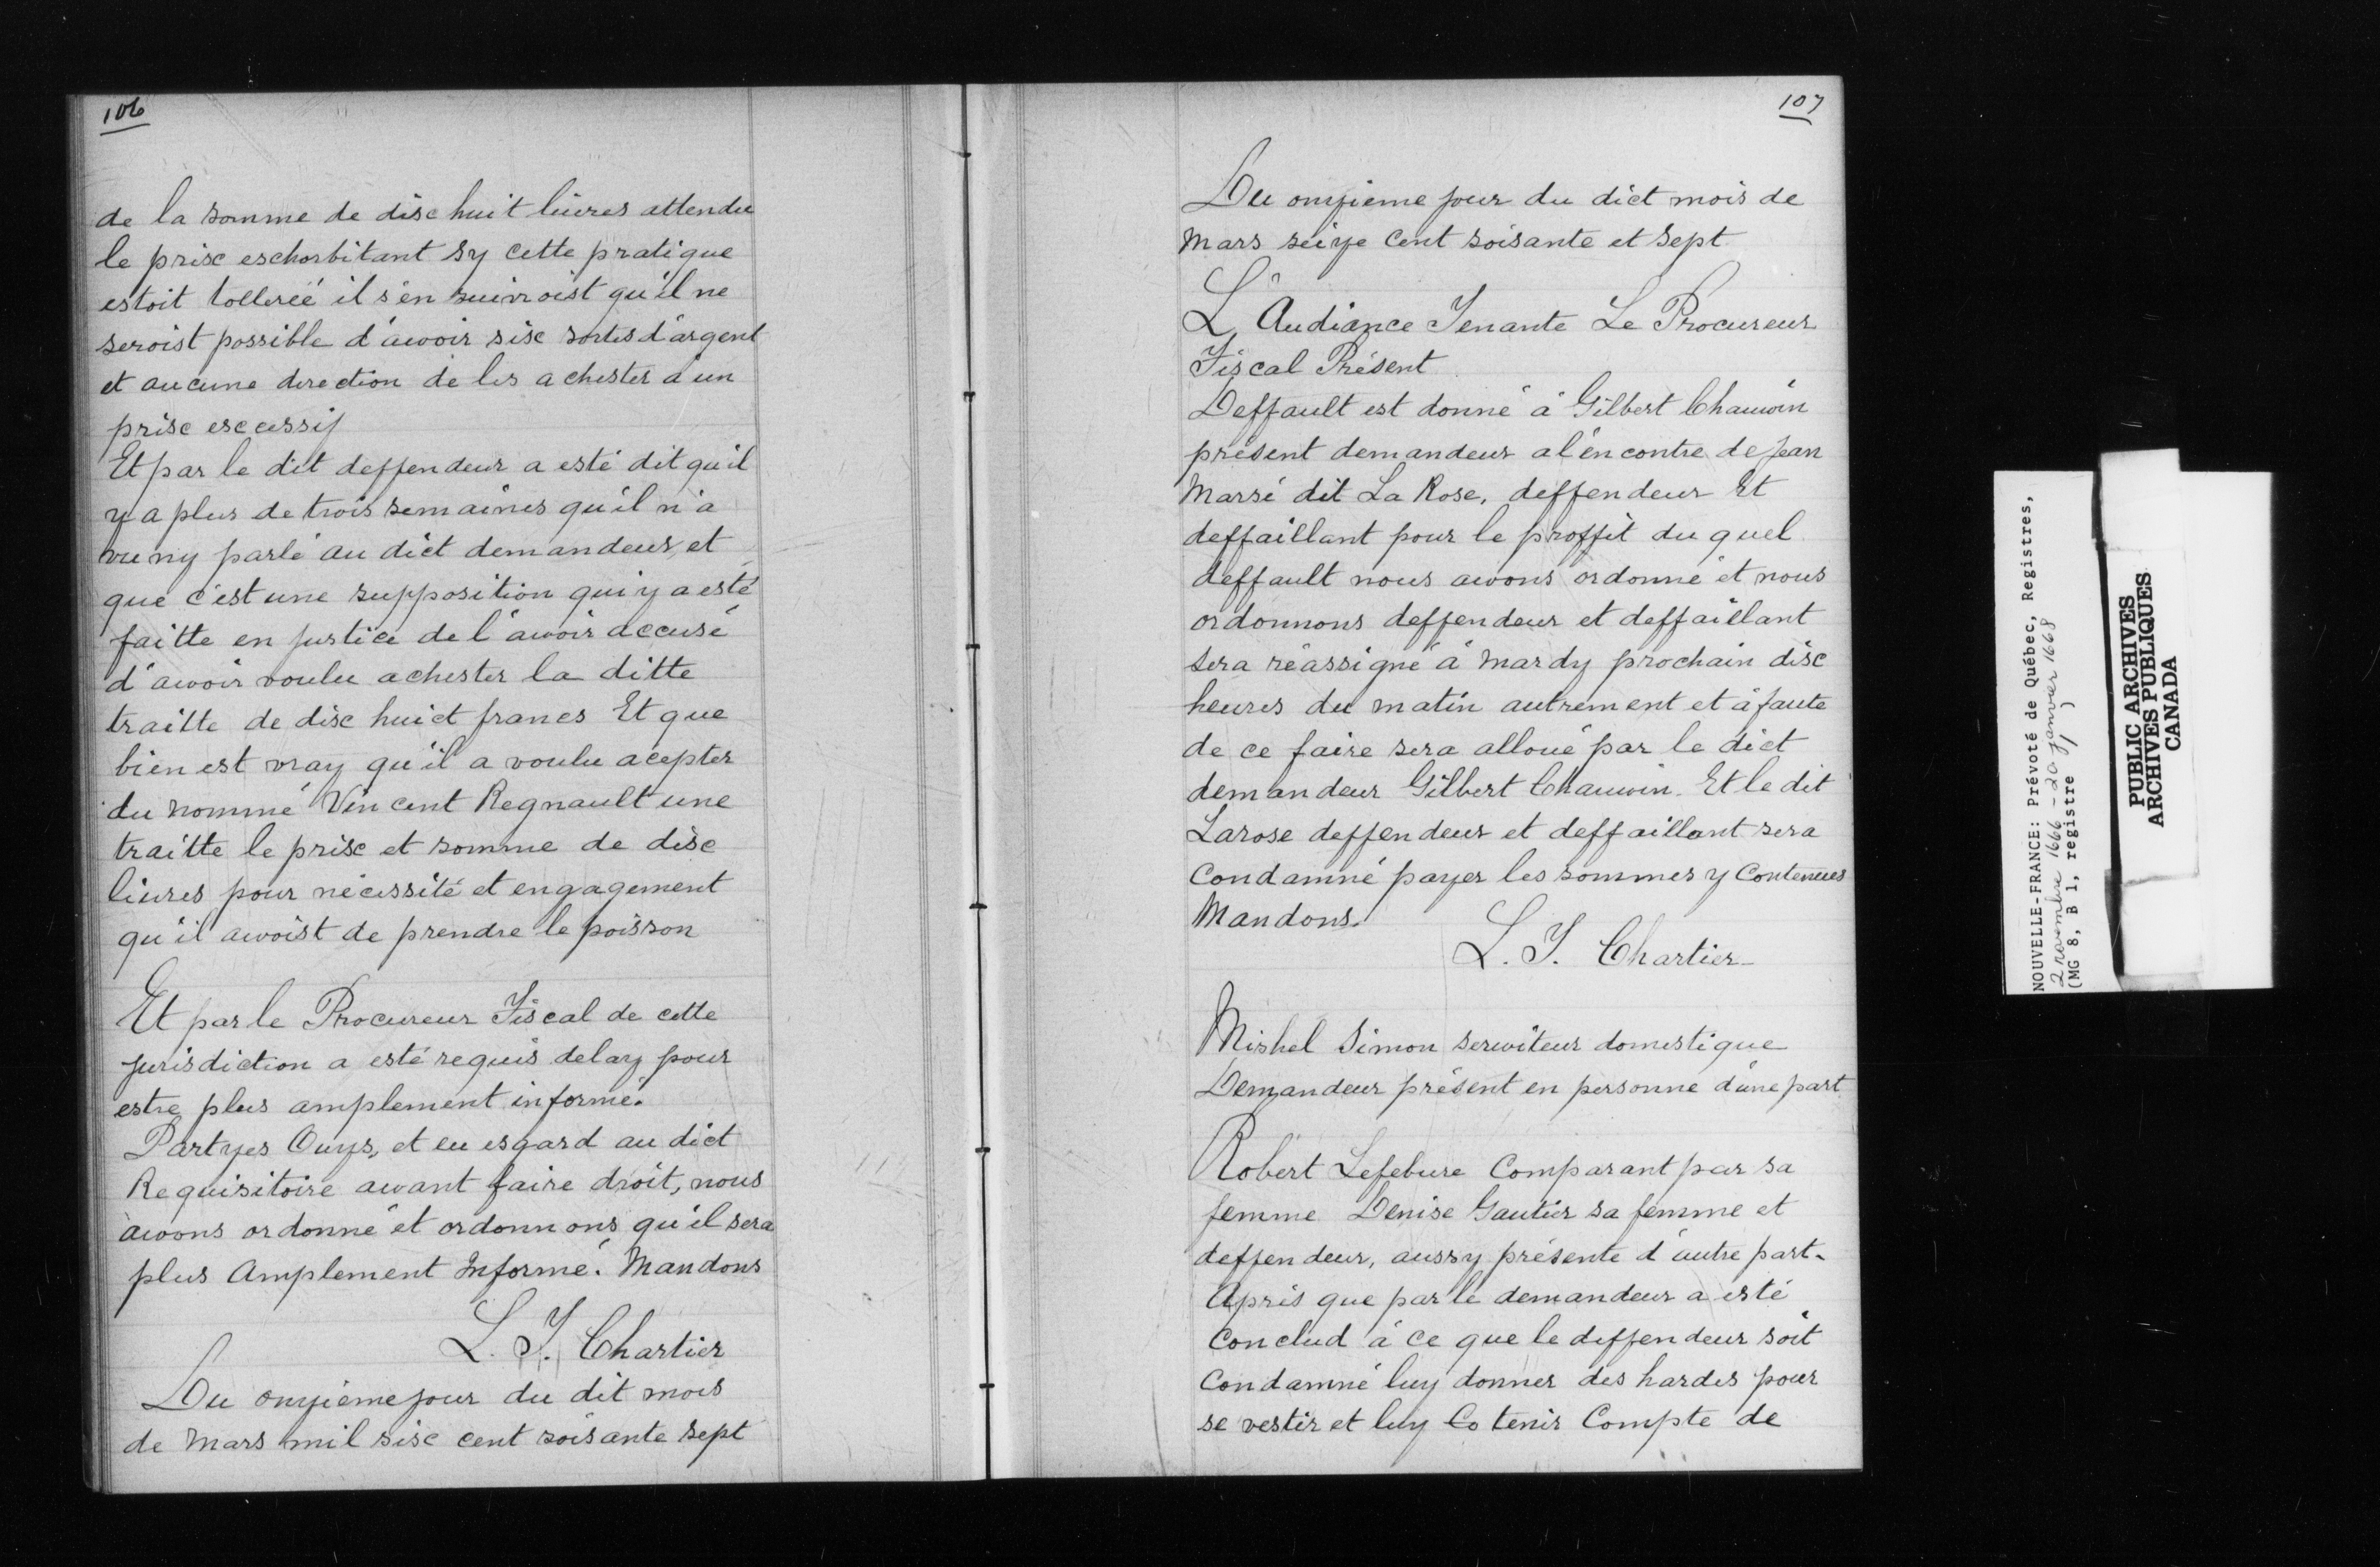 106
de la somme de disc huit liures attendu
le prisc eschorbitant sy cette pratique
estoit tolleréé il s'en suivroist qu'il ne
seroist possible d'avoir sisc sortes d'argent
et aucune direction de les achester a un
prisc escessif
Et par le dit deffendeur a esté dit qu'il
y a plus de trois semaines qu'il n'a
vu ny parlé au dict demandeur, et
que c'est une supposition qui y a esté
faitte en justice de l'avoir accusé
d'avoir voulu achester la ditte
traitte de disc huict francs Et que
bien est vray qu'il a voulu acepter
du nommé Vincent Regnault une
traitte le prisc et somme de disc
liures pour nécessité et engagement
qu'il avoist de prendre le poisson
Et par le Procureur Fiscal de cette
jurisdiction a esté requis delay pour
estre plus amplement informé.
Partyes Ouys, et eu esgard au dict
Requisitoire avant faire droit, nous
avons ordonné et ordonnons qu'il sera
plus Amplement Informé. Mandons
L. T. Chartier
Du onzieme jour du dit mois
de Mars mil sisc cent soisante sept
107
Du onzieme jour du dict mois de
Mars seize Cent soisante et Sept
L'Audiance Tenante Le Procureur
Fiscal Présent
Deffault est donné à Gilbert Chauvin
présent demandeur a l'encontre de Jean
Marsé dit La Rose, deffendeur Et
deffaillant pour le proffit du quel
deffault nous avons ordonné et nous
ordonnons deffendeur et deffaillant
sera réassigné à Mardy prochain disc
heures du matin autrement et à faute
de ce faire sera alloué par le dict
demandeur Gilbert Chauvin. Et le dit
Larose deffendeur et deffaillant sera
Condamné payer les sommes y Contenues
Mandons.
L. T. Chartier
Mishel Simon serviteur domestique
Demandeur présent en personne d'une part
Robert Lefebure Comparant par sa
femme Denise Gautier sa femme et
deffendeur, aussy présente d'autre part.
Après que par le demandeur a esté
Conclud à ce que le deffendeur soit
Condamné luy donner des hardes pour
se vestir et luy Co tenir Compte de
NOUVELLE-FRANCE: Prévoté de Québec, Registres,
2 novembre 1666 - 20 janvier 1668
(MG 8, B 1, registre )
PUBLIC ARCHIVES
ARCHIVES PUBLIQUES
CANADA